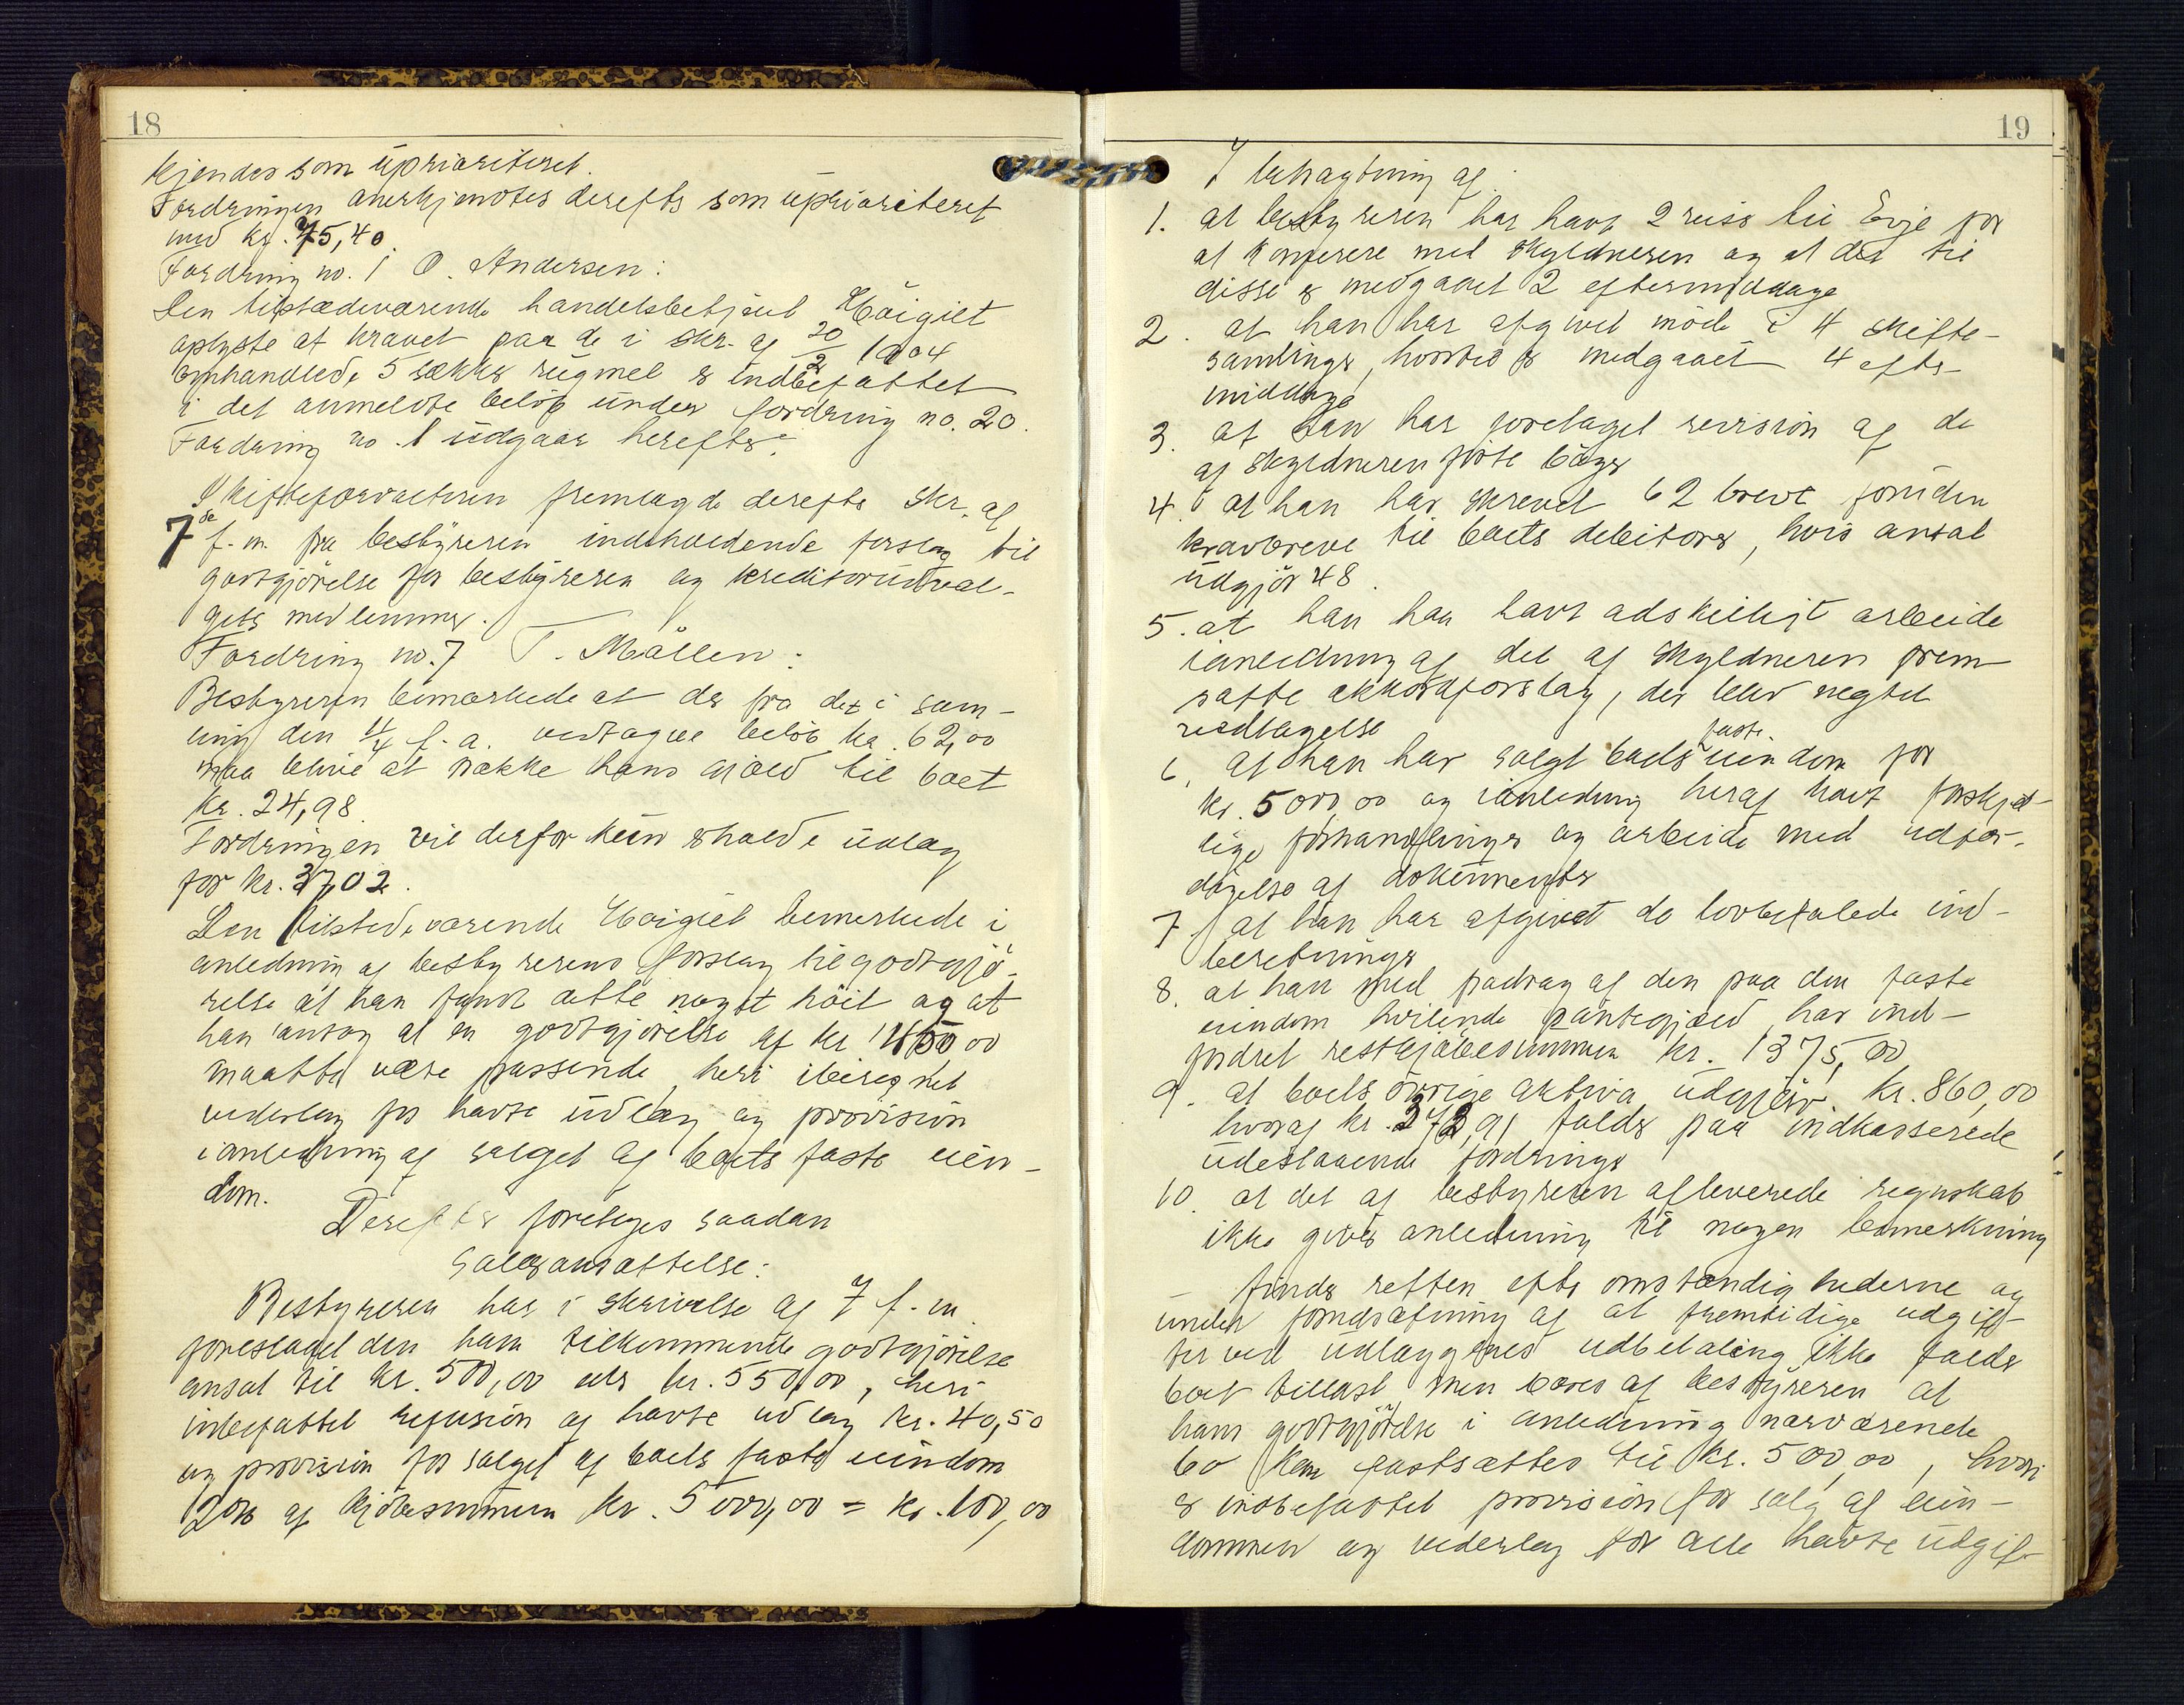 18
kjendes som upriariteret.
Fordringen anerkjendtes derefter som upriariteret
med kr. 75,40.
Fordring no. 1 O. Andersen:
Den tilstædeværende handelsbetjent Høigilt
oplyste at kravet paa de i skr. af 20/2 1904
omhandlede 5 sækker rugmel er indbefattet
i det anmeldte beløb under fordring no. 20.
Fordring no. 1 udgaar herefter.
Skifteforvalteren fremlagde derefter skr. af
7de f. m. fra bestyreren indeholdende forslag til
godtgjørelse for bestyreren og kreditorudval-
gets medlemmer.
Fordring no. 7 T. Møllen:
Bestyreren bemærkede at der fra det i sam-
ling den 11/4 f. a. vedtagne beløb kr. 62,00
maa blive at trække hans gjæld til boet
kr. 24,98
Fordringen vil derfor kun erholde udlæg
for kr. 37,02.
Den tilstedeværende Høigilt bemerkede i
anledning af bestyrerens forslag til godtgjø-
relse at han fandt dette noget høit og at
han antog at en godtgjørelse af kr 450,00
maatte være passende, heri iberegnet
vederlag for havte udlæg og provision
i anledning af salget af boets faste eien-
dom.
Derefter foretoges saadan
Salæransættelse:
Bestyreren har i skrivelse af 7 f. m.
foreslaaet den ham tilkommende godtgjørelse
ansat til kr. 500,00 eller kr. 550,00, heri
inbefattet refusion af havte udlæg kr. 40,50
og provision for salget af boets faste eiendom
2 0/0 af kjøbesummen kr. 5000,00 = kr. 100,00
19
I betragtning af
1. at bestyreren har havt 2 reiser til Evje for
at konferere med skyldneren og at der til
disse er medgaaet 2 eftermiddage
2. at han har afgivet møde i 4 skifte-
samlinger, hvorved er medgaaet 4 efter-
middage
3. at han har foretaget revision af de
af skyldneren førte bøger
4. at han har skrevet 62 breve foruden
kravbreve til boets debitorer, hvis antal
udgjør 48.
5. at han har havt adskilligt arbeide
ianledning af det af skyldneren frem-
satte akkordforslag, der blev negtet
vedtagelse
6. at han har solgt boets faste eiendom for
kr. 5000,00 og ianledning heraf havt forskjel-
lige forhandlinger og arbeide med udfær-
digelse af dokumenter
7. at han har afgivet de lovbefalede ind-
beretninger
8. at han med fradrag af den paa den faste
eiendom hvilende pantegjæld har ind-
fordret restkjøbesummen kr. 1375,00
9. at boets øvrige aktiva udgjør kr. 860,00
hvoraf kr. 272,91 falder paa indkasserede
udestaaende fordringer
10. at det af bestyreren afleverede regnskab
ikke giver anledning til nogen bemerkning
finder retten efter omstændighederne og
under forudsætning af at fremtidige udgif-
ter ved udlæggenes udbetaling ikke falder
boet tillast, men bæres af bestyreren at
hans godtgjørelse i anledning nærværende
bo kan fastsættes til kr. 500,00, hvori
er indbefattet provision for salg af eien-
dommen og vederlag for alle havte udgif-